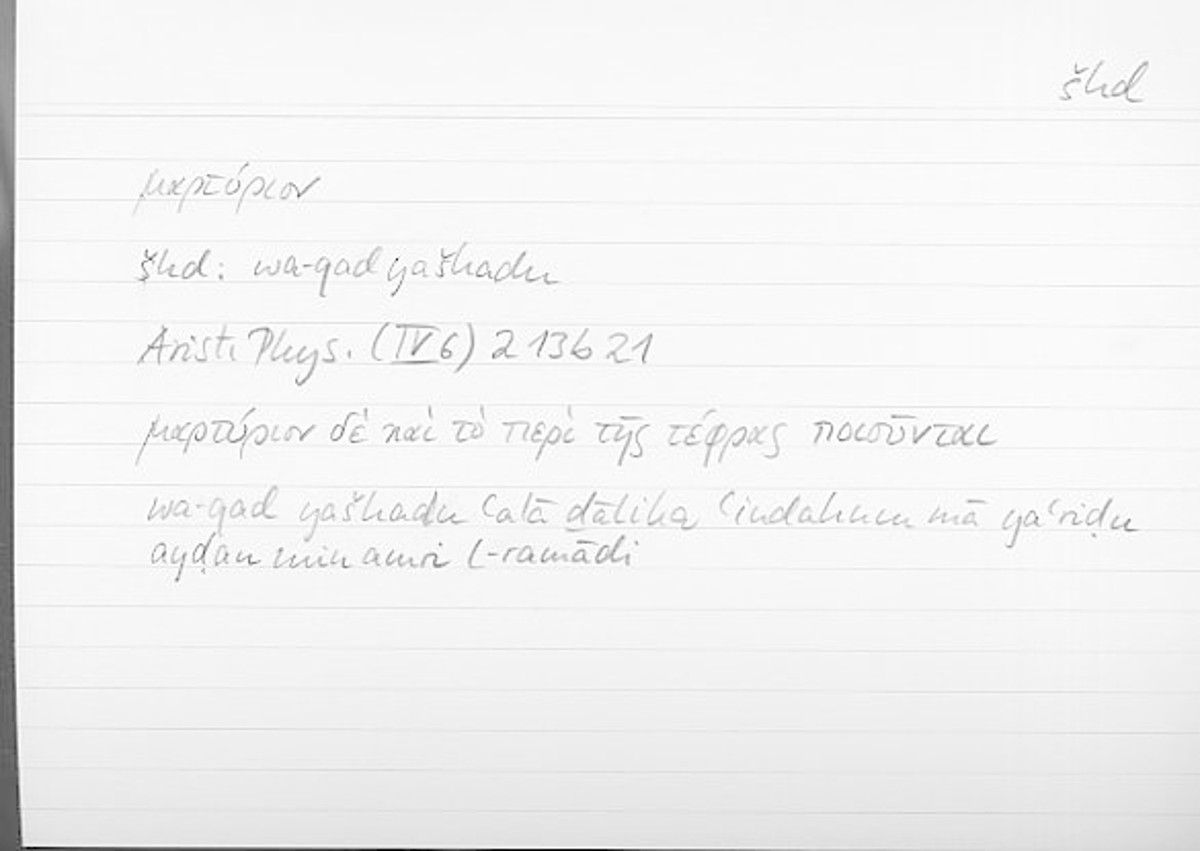 šhd
μαρτύριον
šhd: wa-qad yašhadu
Arist. Phys. (IV 6) 213b21
μαρτύριον δὲ καὶ τὸ περὶ τῆς τέφρας ποιοῦνται
wa-qad yašhadu ʿalā ḏālika ʿindahum mā yaʿriḍu
ayḍan min amri l-ramādi